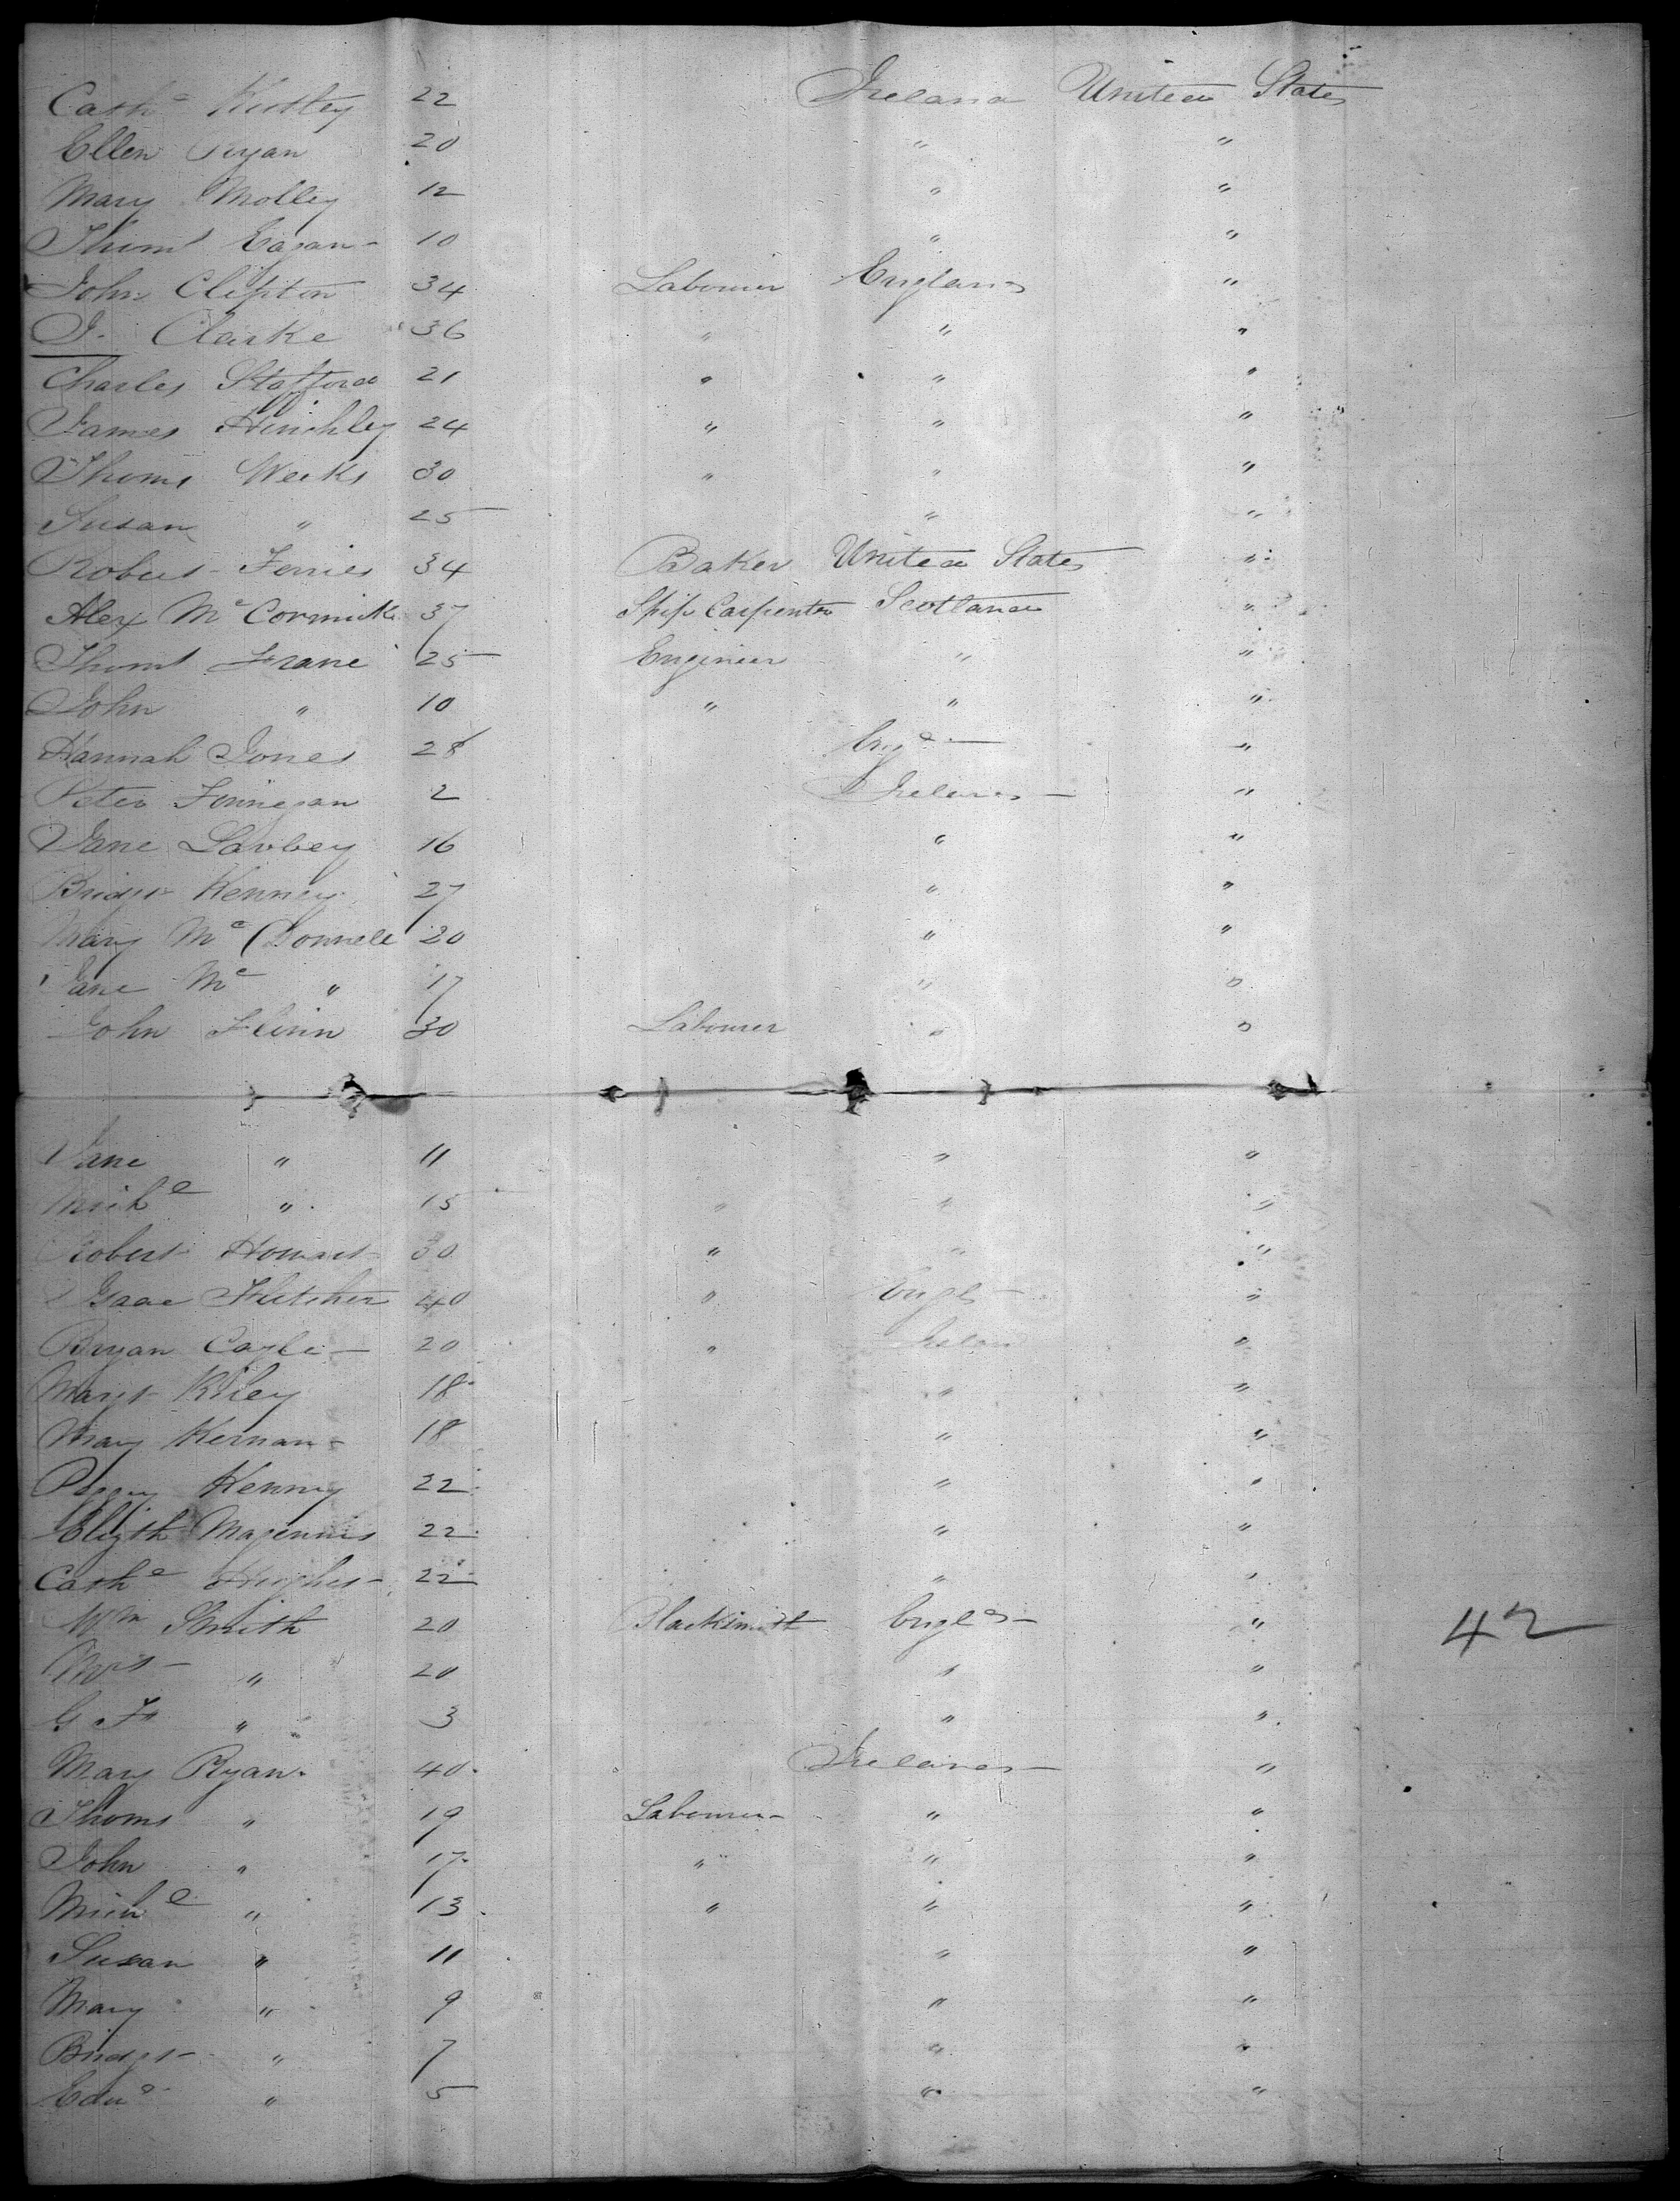 Cath^e 22 Ireland United States
Ellen Ryan 20 " "
Mary Molley 12 " "
Thoms Eagan 10 " "
John Clifton 34 Labourer England "
J. Clarke 36 " " "
Charles Stafford 21 " " "
James Hinchley 24 " " "
Thoms Weeks 30 " " "
Susan " 25 " "
Robert Ferries 34 Baker United States "
Alex McCormick 37 Ship Carpenter Scotland "
Thoms Frane 25 Engineer " "
John " 10 " " "
Hannah Jones 28 Eng^d "
Peter Finnegan 2 Ireland "
Jane 16 " "
Bridgt Kenney 27 " "
Mary Mc Donnell 20 " "
Jane Mc " 17 " "
John Flinn 30 Labourer " "
Jane " 11 " "
Mich^l " 15 " " "
Robert Howart 30 " " "
Isaac Fletcher 40 " Engl^d "
Bryan 20 " Ireland "
Margt Riley 18 " "
Mary Kernan 18 " "
Peggy Kenny 22 " "
Elizth Magennis 22 " "
Cath^e Hughes 22 " "
Wm Smith 20 Blacksmith Engl^d " 42
Mrs " 20 " "
G F " 3 " "
Mary Ryan 40 Ireland "
Thoms " 19 Labourer " "
John " 17 " " "
Mich^l " 13 " " "
Susan " 11 " "
Mary " 9 " "
Bridgt " 7 " "
Edw^d " 5 " "